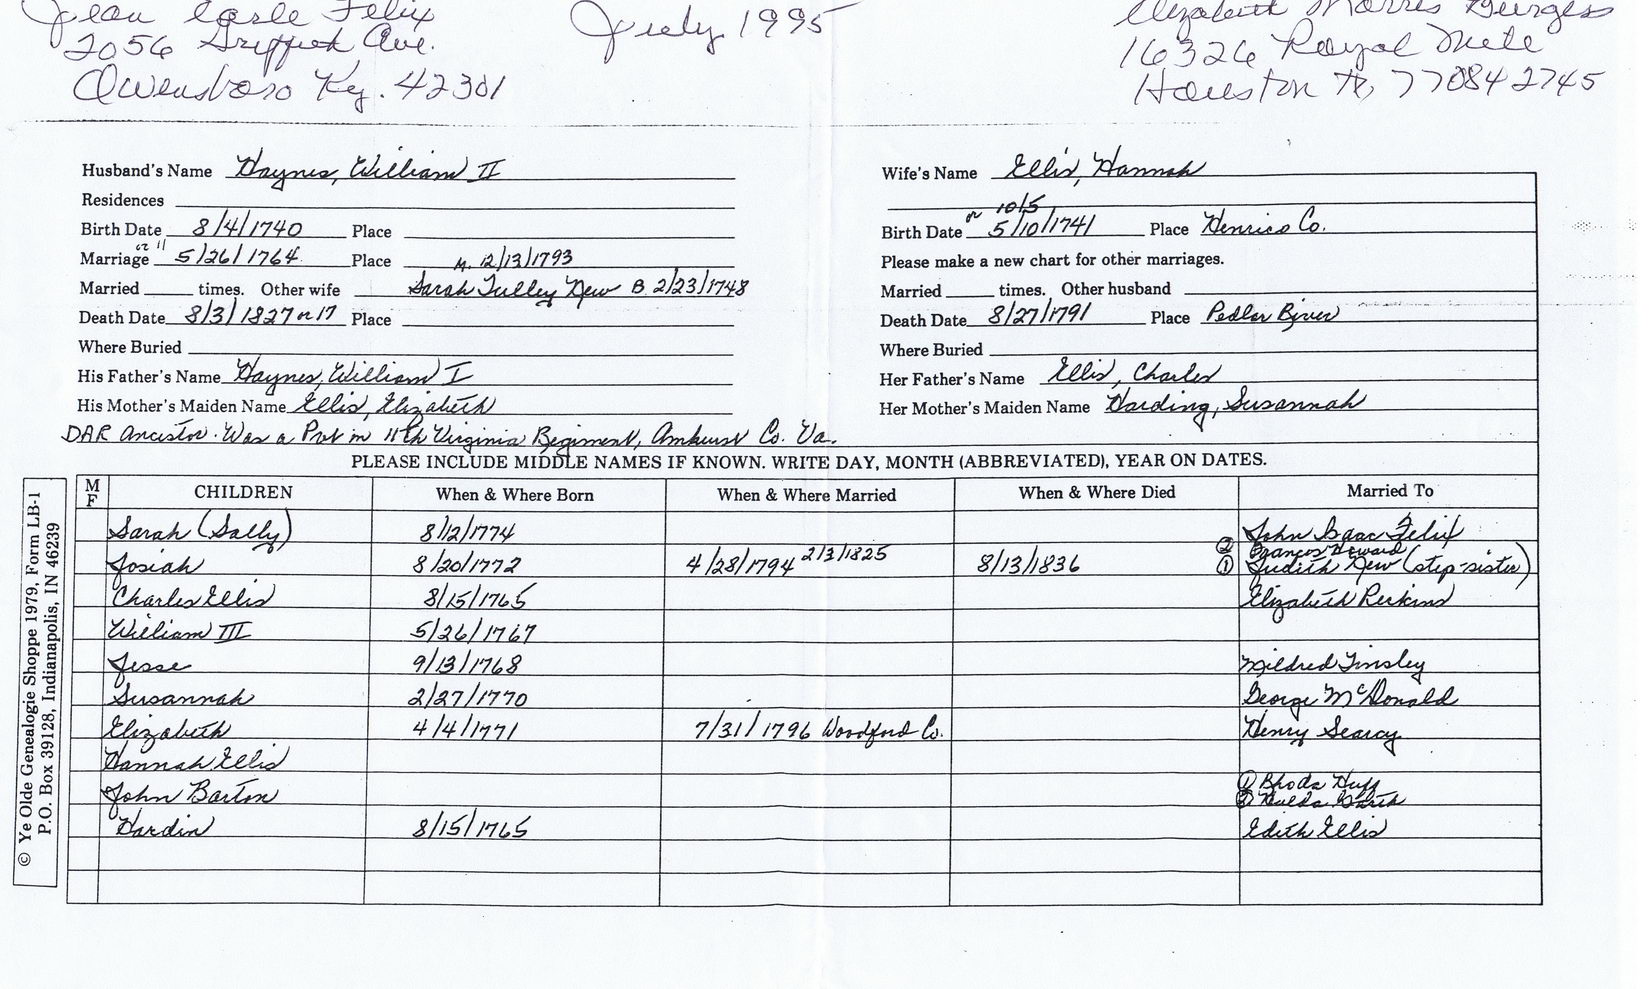 Jean Earle Felix
2056 Griffith Ave.
Owensboro Ky. 42301
July 1995
Elizabeth Morris Burgess
16326 Royal Mile
Houston Tx, 77084 2745
Husband's Name Haynes, William II
Residences
Birth Date 8/4/1740 Place
Marriage or 11 5/26/1764 Place M. 12/13/1793
Married times. Other wife Sarah Tulley New B. 2/23/1748
Death Date 8/3/1827 or 17 Place
Where Buried
His Father's Name Haynes, William I
His Mother's Maiden Name Ellis, Elizabeth
DAR Ancestor. Was a Pvt in 11th Virginia Regiment, Amhurst Co. Va.
Wife's Name Ellis, Hannah
or 10/5
Birth Date 5/10/1741 Place Henrico Co.
Please make a new chart for other marriages.
Married times. Other husband
Death Date 8/27/1791 Place Pedlar River
Where Buried
Her Father's Name Ellis, Charles
Her Mother's Maiden Name Harding, Susannah
PLEASE INCLUDE MIDDLE NAMES IF KNOWN. WRITE DAY, MONTH (ABBREVIATED), YEAR ON DATES.
M F CHILDREN When & Where Born When & Where Married When & Where Died Married To
Sarah (Sally) 8/12/1774 John Isaac Felix
Josiah 8/20/1772 4/28/1794 2/3/1825 8/13/1836 ② Frances Howard
① Judith New (step-sister)
Charles Ellis 8/15/1765 Elizabeth Perkins
William III 5/26/1767
Jesse 9/13/1768 Mildred Tinsley
Susannah 2/27/1770 George McDonald
Elizabeth 4/4/1771 7/31/1796 Woodford Co. Henry Searcy
Hannah Ellis
John Barton ① Rhoda Huff
② Hulda
Hardin 8/15/1765 Edith Ellis
© Ye Olde Genealogie Shoppe 1979, Form LB-1
P.O. Box 39128, Indianapolis, IN 46239